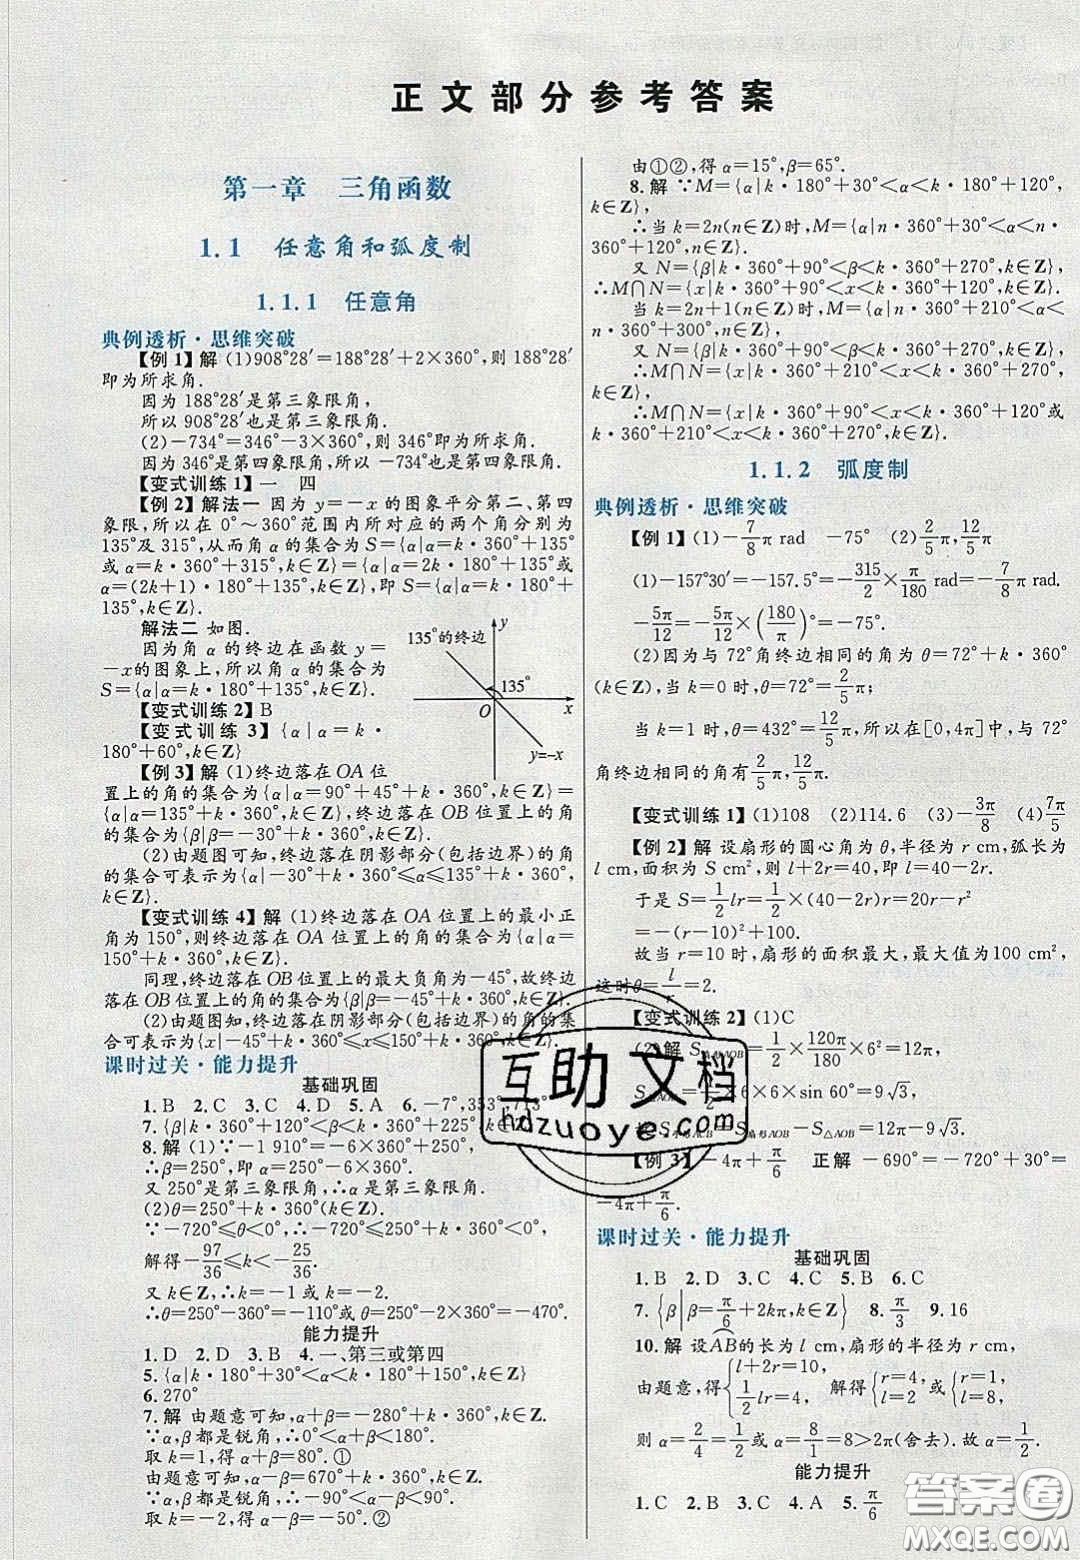 正文部分参考答案
第一章 三角函数
1.1 任意角和弧度制
1.1.1 任意角
典例透析·思维突破
【例1】解 (1)908°28′=188°28′+2×360°,则188°28′
即为所求角.
因为188°28′是第三象限角,
所以908°28′也是第三象限角.
(2)-734°=346°-3×360°,则346°即为所求角.
因为346°是第四象限角,所以-734°也是第四象限角.
【变式训练1】一 四
【例2】解法一 因为y=-x的图象平分第二、第四
象限,所以在0°~360°范围内所对应的两个角分别为
135°及315°,从而角α的集合为S={α|α=k·360°+135°
或α=k·360°+315°,k∈Z}={α|α=2k·180°+135°或
α=(2k+1)·180°+135°,k∈Z},即S={α|α=k·180°+
135°,k∈Z}.
解法二 如图.
因为角α的终边在函数y=
-x的图象上,所以角α的集合为
S={α|α=k·180°+135°,k∈Z}.
135°的终边
y
135°
O
x
y=-x
【变式训练2】B
【变式训练3】{α|α=k·
180°+60°,k∈Z}
【例3】解 (1)终边落在OA位
置上的角的集合为{α|α=90°+45°+k·360°,k∈Z}=
{α|α=135°+k·360°,k∈Z},终边落在OB位置上的角
的集合为{β|β=-30°+k·360°,k∈Z}.
(2)由题图可知,终边落在阴影部分(包括边界)的角
的集合可表示为{α|-30°+k·360°≤α≤135°+k·360°,
k∈Z}.
【变式训练4】解 (1)终边落在OA位置上的最小正
角为150°,则终边落在OA位置上的角的集合为{α|α=
150°+k·360°,k∈Z}.
同理,终边落在OB位置上的最大负角为-45°,故终边
落在OB位置上的角的集合为{β|β=-45°+k·360°,k∈Z}.
(2)由题图知,终边落在阴影部分(包括边界)的角的集
合可表示为{x|-45°+k·360°≤x≤150°+k·360°,k∈Z}.
课时过关·能力提升
基础巩固
1.B 2.C 3.C 4.D 5.A 6.-7°,353°,713°
7.{β|k·360°+120°<β<k·360°+225°,k∈Z}
8.解 (1)∵-1 910°=-6×360°+250°,
∴β=250°,即α=250°-6×360°.
又250°是第三象限角,∴α是第三象限角.
(2)θ=250°+k·360°(k∈Z).
∵-720°≤θ<0°,∴-720°≤250°+k·360°<0°,
解得-97/36≤k<-25/36.
又k∈Z,∴k=-1或k=-2.
∴θ=250°-360°=-110°或θ=250°-2×360°=-470°.
能力提升
1.D 2.D 3.B 4.一、第三或第四
5.{α|k·180°+30°<α<k·180°+150°,k∈Z}
6.270°
7.解 由题意可知,α+β=-280°+k·360°,k∈Z.
∵α,β都是锐角,∴0°<α+β<180°.
取k=1,得α+β=80°.①
由题意可知,α-β=670°+k·360°,k∈Z.
∵α,β都是锐角,∴-90°<α-β<90°.
取k=-2,得α-β=-50°.②
由①②,得α=15°,β=65°.
8.解 ∵M={α|k·180°+30°<α<k·180°+120°,
k∈Z},
∴当k=2n(n∈Z)时,M={α|n·360°+30°<α<n·
360°+120°,n∈Z}.
又N={β|k·360°+90°<β<k·360°+270°,k∈Z},
∴M∩N={x|k·360°+90°<x<k·360°+120°,k∈Z}.
当k=2n+1(n∈Z)时,M={α|n·360°+210°<α<n·
360°+300°,n∈Z},
又N={β|k·360°+90°<β<k·360°+270°,k∈Z},
∴M∩N={x|k·360°+210°<x<k·360°+270°,
k∈Z}.
∴M∩N={x|k·360°+90°<x<k·360°+120°或
k·360°+210°<x<k·360°+270°,k∈Z}.
1.1.2 弧度制
典例透析·思维突破
【例1】(1)-7/8π rad -75° (2)2/5π,12/5π
(1)-157°30′=-157.5°=-315/2×π/180 rad=-7/8π rad.
-5π/12=-5π/12×(180/π)°=-75°.
(2)因为与72°角终边相同的角为θ=72°+k·360°
(k∈Z),当k=0时,θ=72°=2/5π;
当k=1时,θ=432°=12/5π,所以在[0,4π]中,与72°
角终边相同的角有2/5π,12/5π.
【变式训练1】(1)108 (2)114.6 (3)-3π/8 (4)7π/5
【例2】解 设扇形的圆心角为θ,半径为r cm,弧长为
l cm,面积为S cm²,则l+2r=40,即l=40-2r.
于是S=1/2lr=1/2×(40-2r)r=20r-r²
=-(r-10)²+100.
故当r=10时,扇形的面积最大,最大值为100 cm²,
这时θ=l/r=2.
【变式训练2】(1)C
(2)解 S扇形AOB=1/2×120π/180×6²=12π,
S△AOB=1/2×6×6×sin 60°=9√3,
S弓形ACB=S扇形AOB-S△AOB=12π-9√3.
【例3】-4π+π/6 正解 -690°=-720°+30°=
-4π+π/6.
课时过关·能力提升
基础巩固
1.B 2.D 3.C 4.C 5.B 6.C
7.{β|β=π/6+2kπ,k∈Z} 8.π/3 9.16
10.解 设AB的长为l cm,扇形的半径为r cm.
由题意,得{l+2r=10, 1/2lr=4, 解得{r=4, l=2, 或{r=1, l=8,
则α=2/4=1/2或α=8/1=8>2π(舍去).故α=1/2.
能力提升
1.C 2.C 3.A 4.A 5.π/6
互助文档
hdzuoye.com
答案圈
MXQE.COM